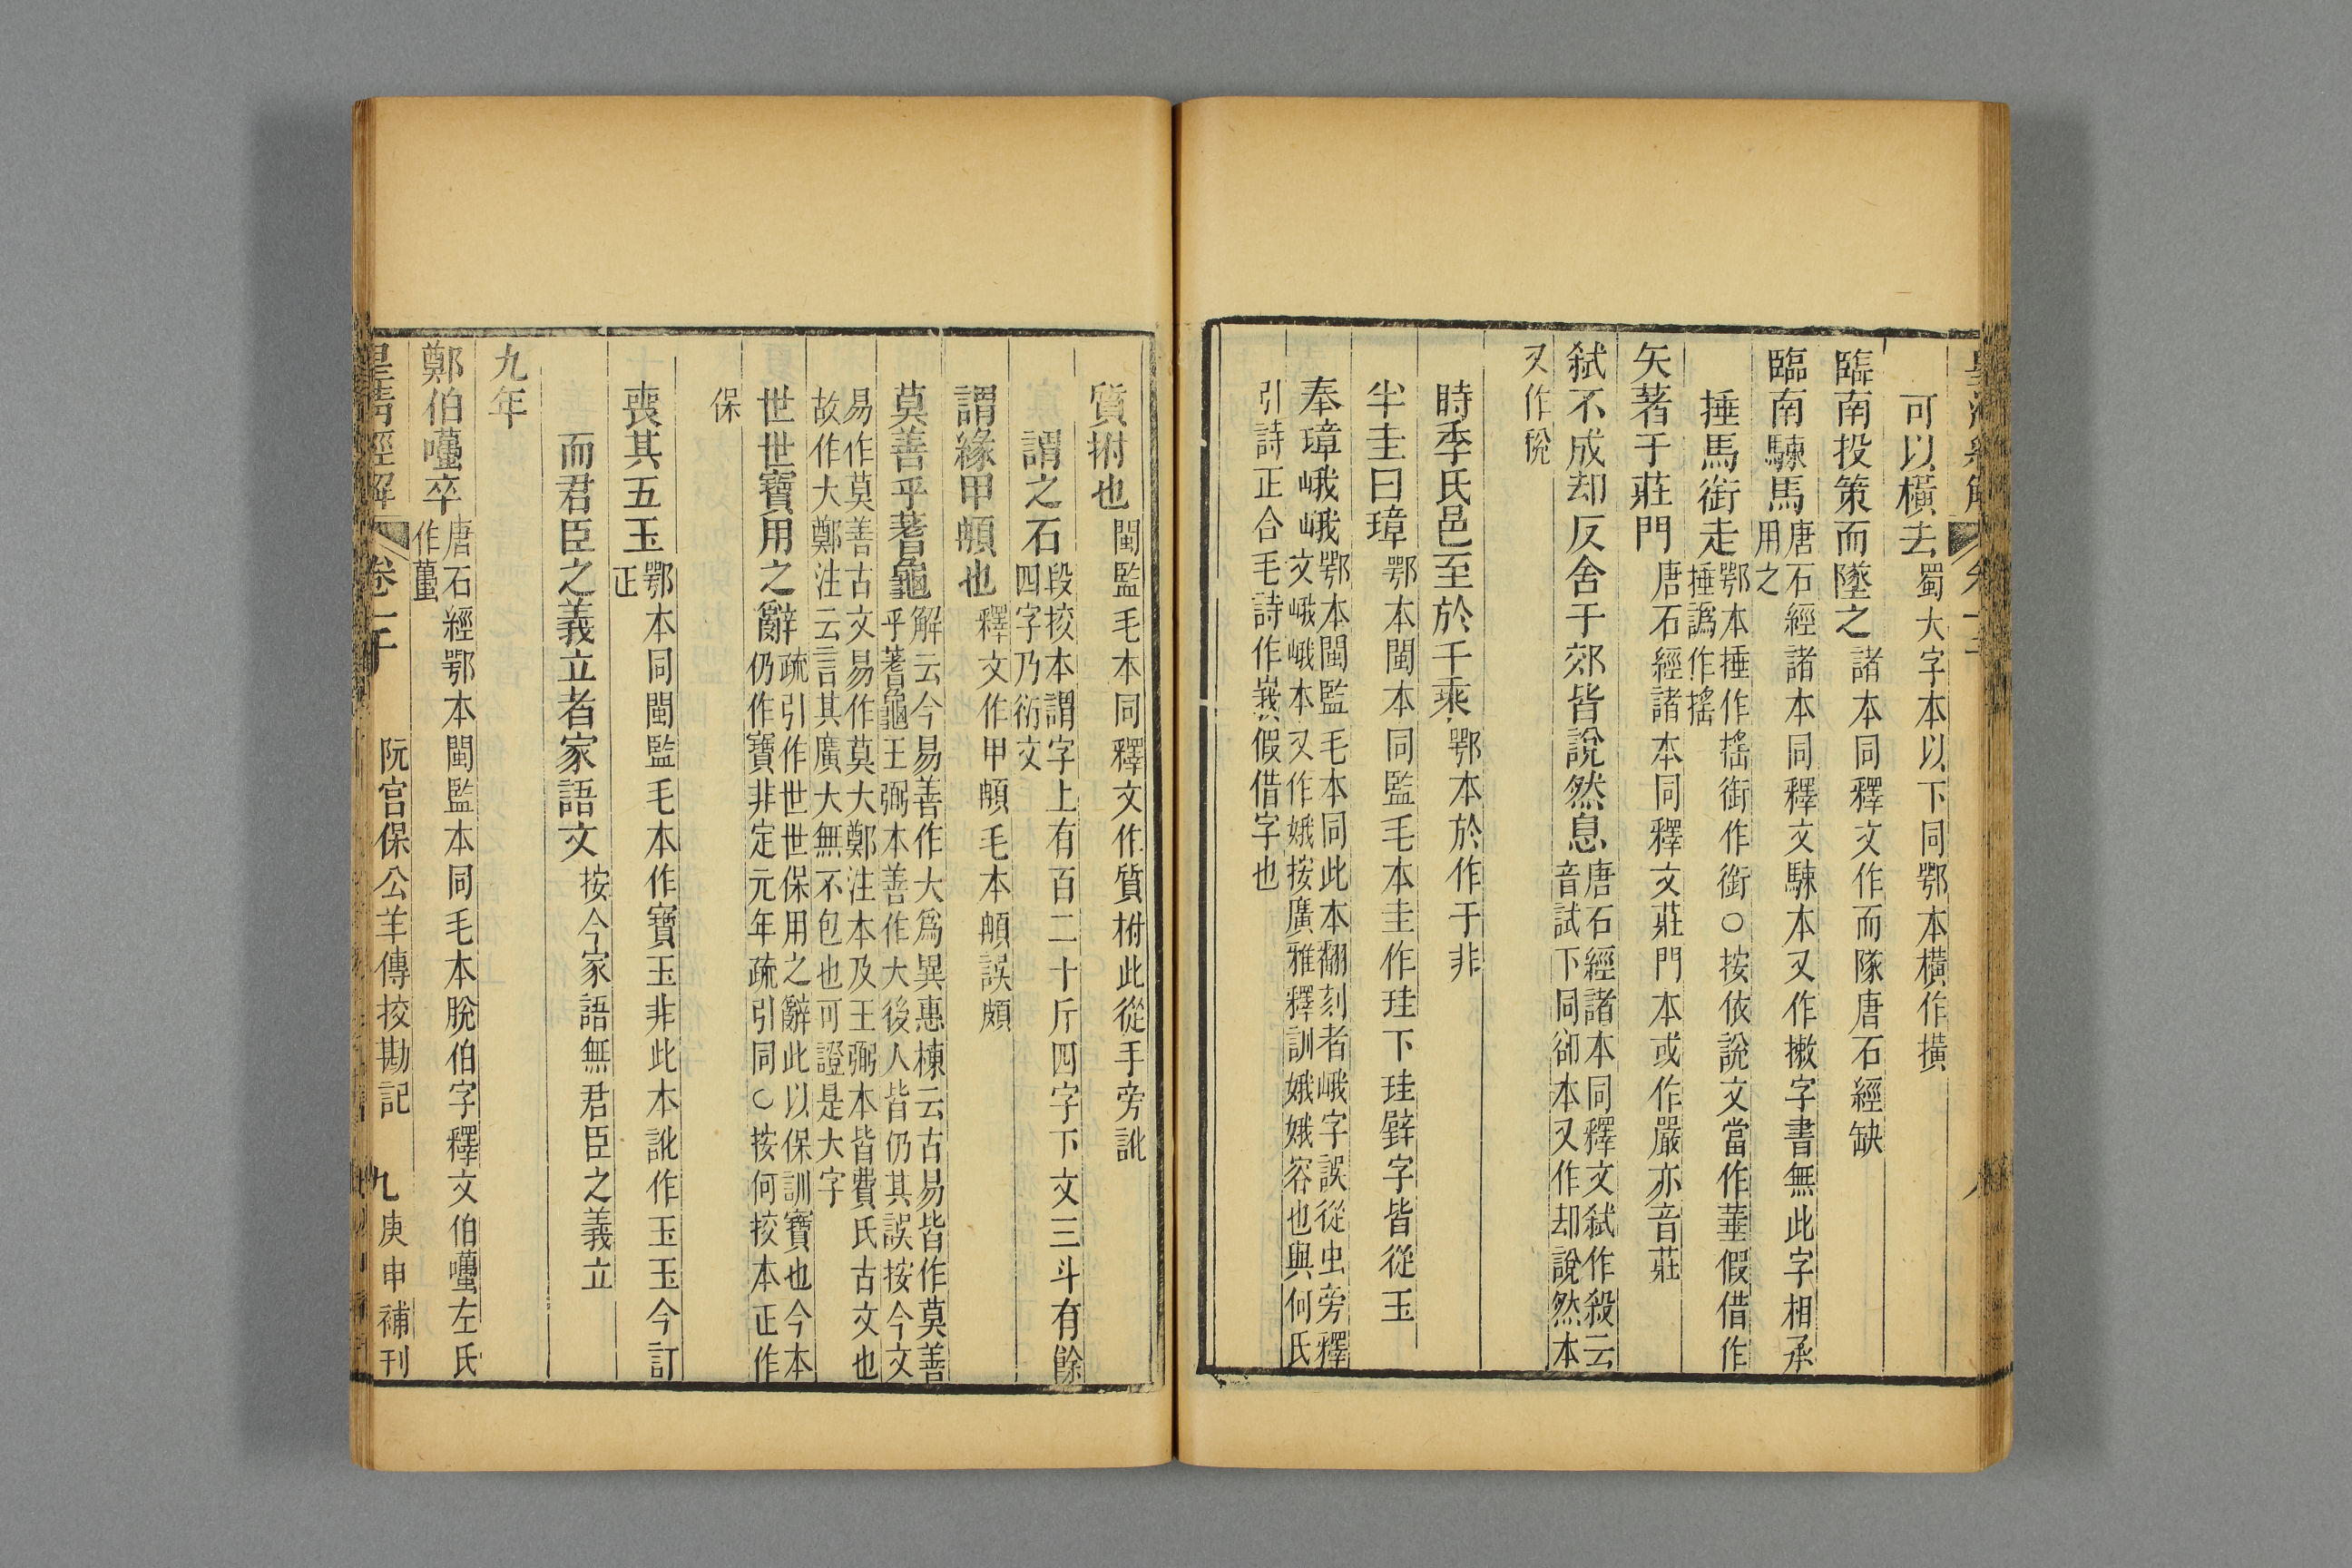 可以橫去蜀大字本以下同鄂本橫作撗
臨南投策而墜之諸本同釋文作而隊唐石經缺
臨南駷馬唐石經諸本同釋文駷本又作摗字書無此字相承
用之
捶馬銜走鄂本捶作搖銜作銜○按依說文當作䇲假借作
捶譌作搖
矢著于莊門唐石經諸本同釋文莊門本或作嚴亦音莊
弑不成却反舍于郊皆說然息唐石經諸本同釋文弑作殺云
音試下同卻本又作却說然本
又作稅
時季氏邑至於千乘鄂本於作于非
半圭曰璋鄂本閩本同監毛本圭作珪下珪辟字皆從玉
奉璋峨峨鄂本閩監毛本同此本翻刻者峨字誤從虫旁釋
文峨峨本又作娥按廣雅釋訓娥娥容也與何氏
引詩正合毛詩作峩假借字也
質拊也閩監毛本同釋文作質柎此從手旁訛
謂之石段挍本謂字上有百二十斤四字下文三斗有餘
四字乃衍文
謂緣甲䫇也釋文作甲䫇毛本䫇誤頗
莫善乎蓍龜解云今易善作大爲異惠棟云古易皆作莫善
乎蓍龜王弼本善作大後人皆仍其誤按今文
易作莫善古文易作莫大鄭注本及王弼本皆費氏古文也
故作大鄭注云言其廣大無不包也可證是大字
世世寶用之辭疏引作世世保用之辭此以保訓寶也今本
仍作寶非定元年疏引同○按何挍本正作
保
喪其五玉鄂本同閩監毛本作寶玉非此本訛作玉玉今訂
正
而君臣之義立者家語文按今家語無君臣之義立
九年
鄭伯囆卒唐石經鄂本閩監本同毛本脫伯字釋文伯囆左氏
作蠆
皇清經解 卷一千 阮宮保公羊傳挍勘記 九 庚申補刊